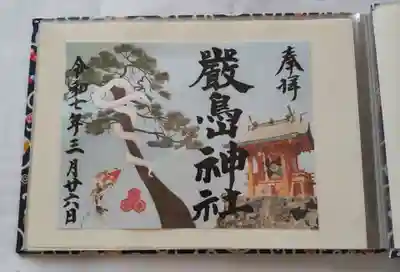 奉拝
厳島神社
令和七年三月廿六日